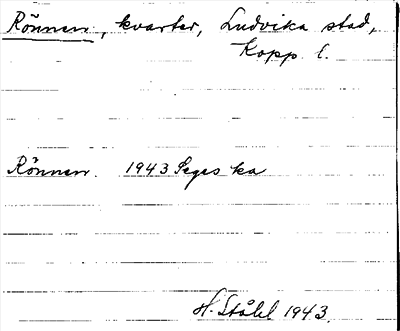 Rönnen, kvarter, Ludvika stad,
Kopp l.
Rönnen. 1943 Seges ka
H. Ståhl 1943.